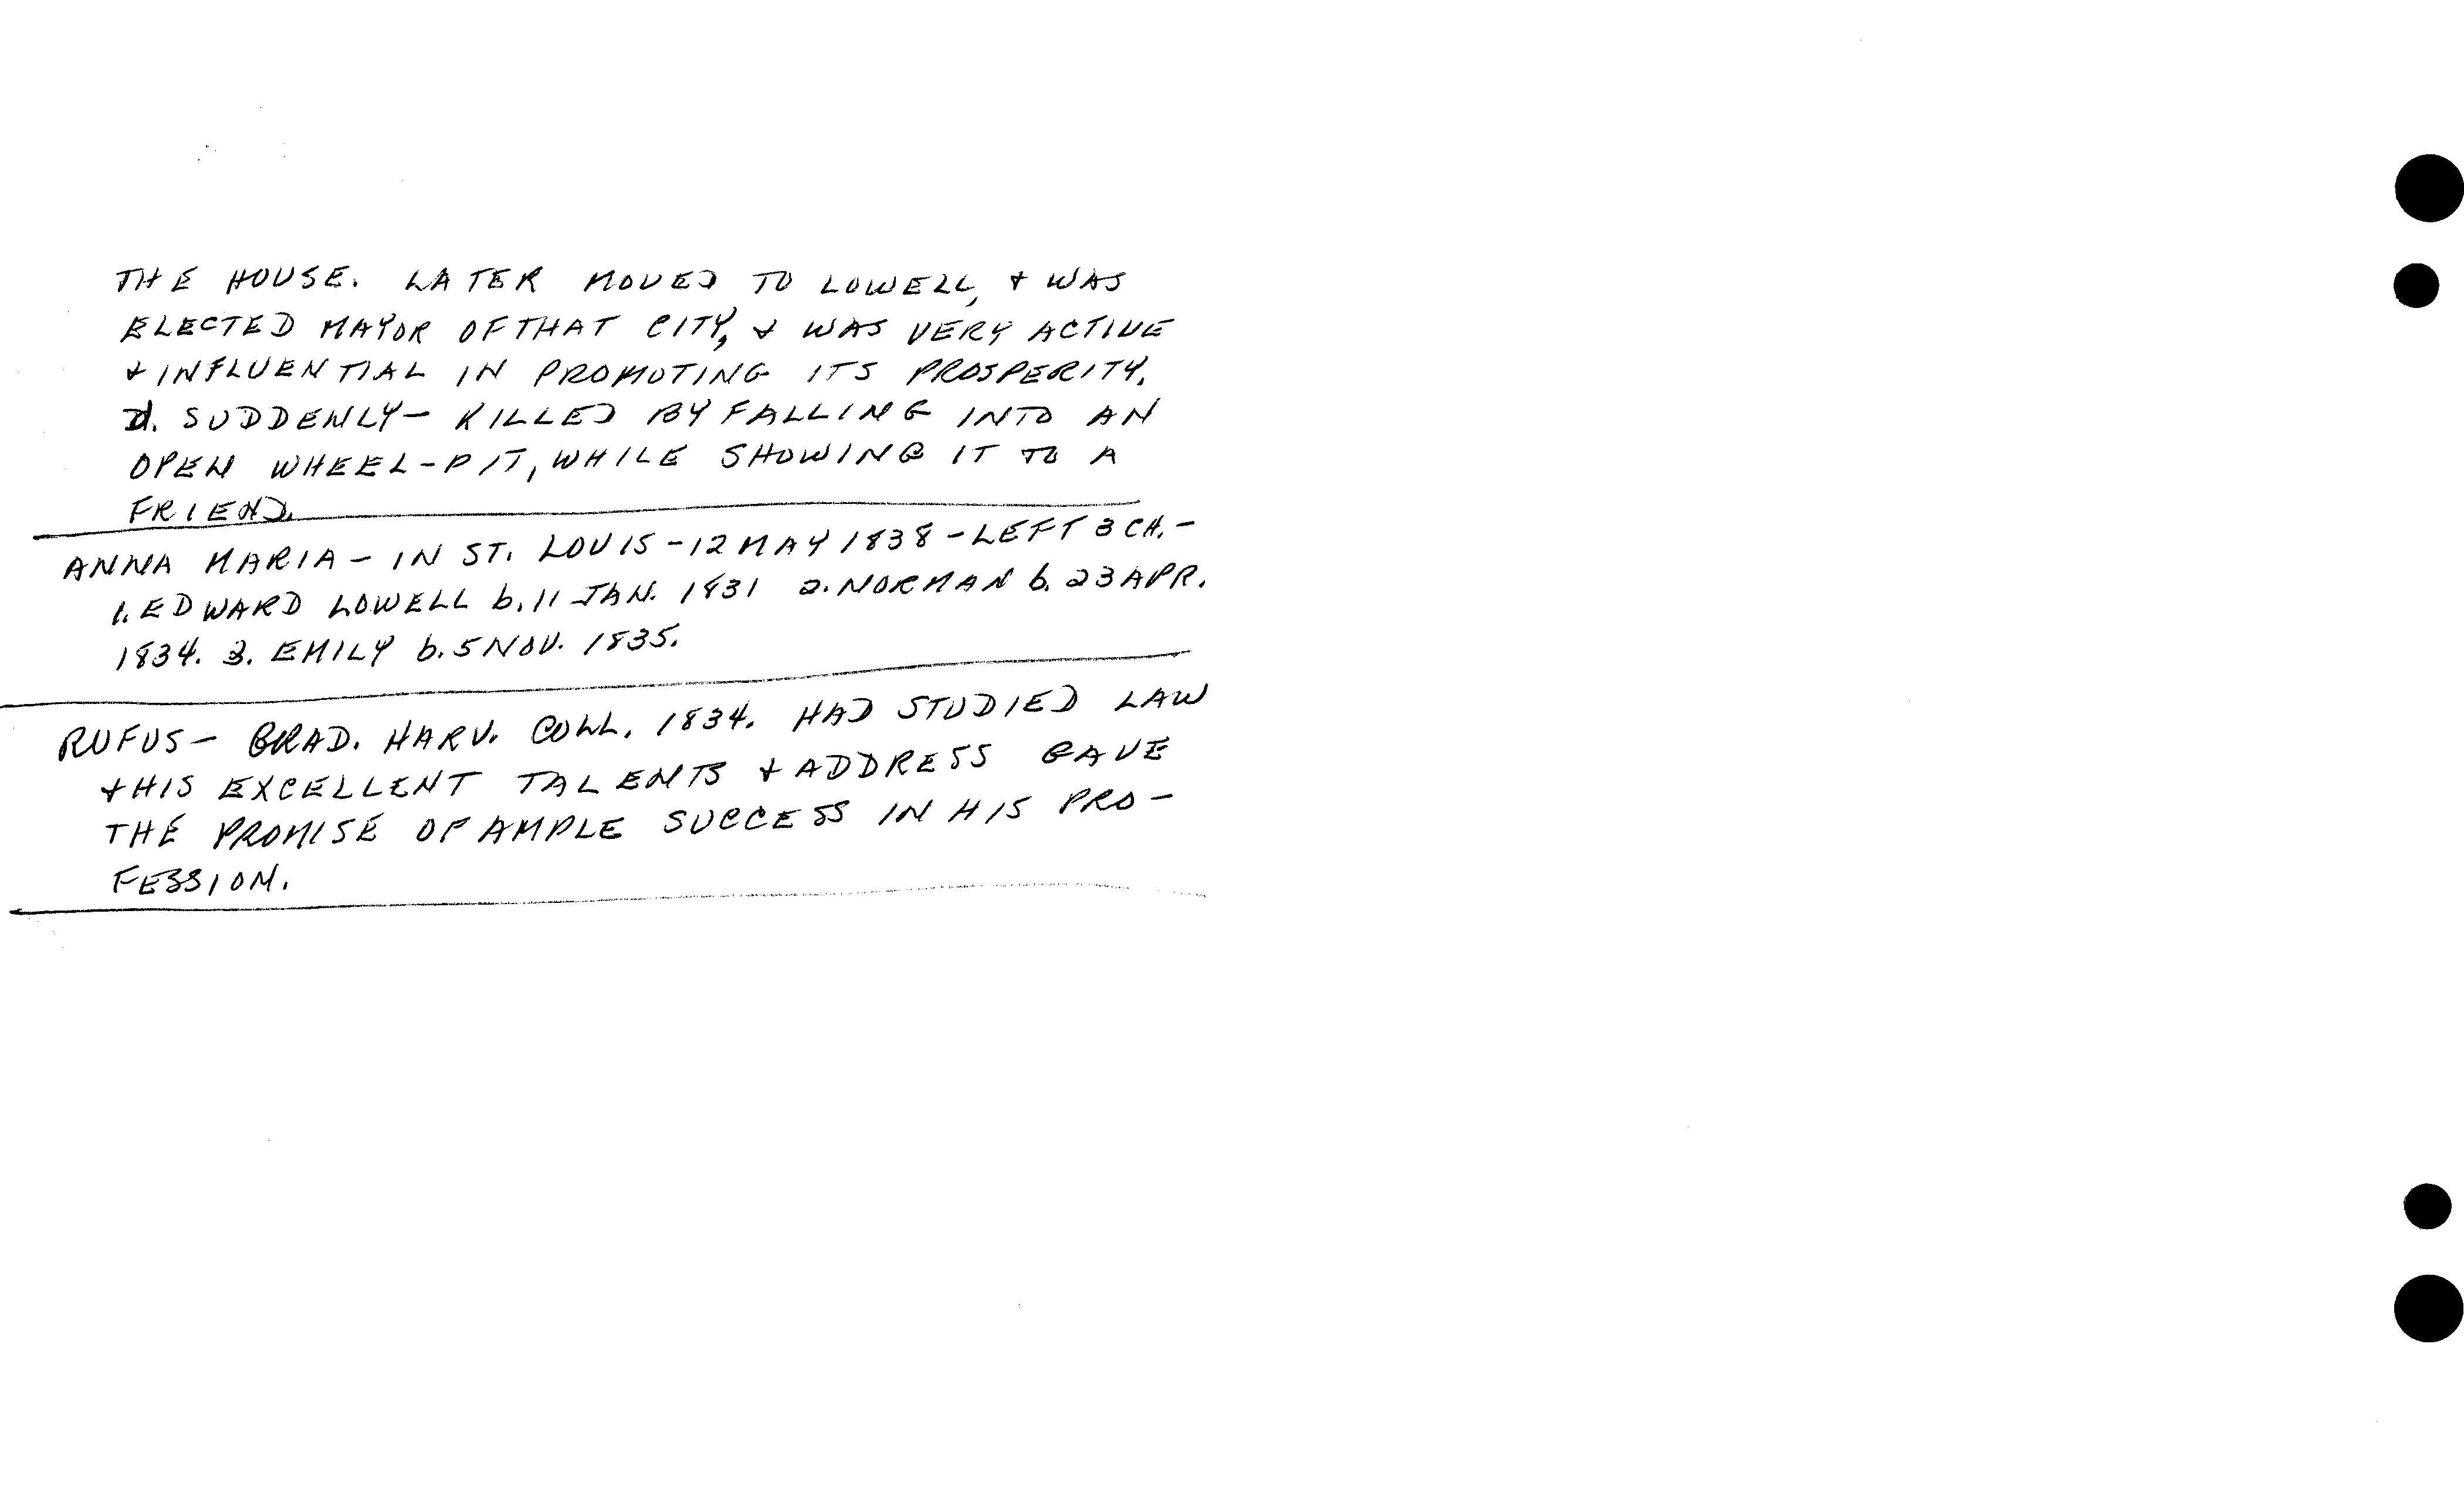 THE HOUSE. LATER MOVED TO LOWELL, & WAS
ELECTED MAYOR OF THAT CITY, & WAS VERY ACTIVE
& INFLUENTIAL IN PROMOTING ITS PROSPERITY.
d. SUDDENLY - KILLED BY FALLING INTO AN
OPEN WHEEL-PIT, WHILE SHOWING IT TO A
FRIEND.
ANNA MARIA - IN ST. LOUIS - 12 MAY 1838 - LEFT 3 CH. -
1. EDWARD LOWELL b. 11 JAN. 1831 2. NORMAN b. 23 APR.
1834. 3. EMILY b. 5 NOV. 1835.
RUFUS - GRAD. HARV. COLL. 1834. HAD STUDIED LAW
& HIS EXCELLENT TALENTS & ADDRESS GAVE
THE PROMISE OF AMPLE SUCCESS IN HIS PRO-
FESSION.